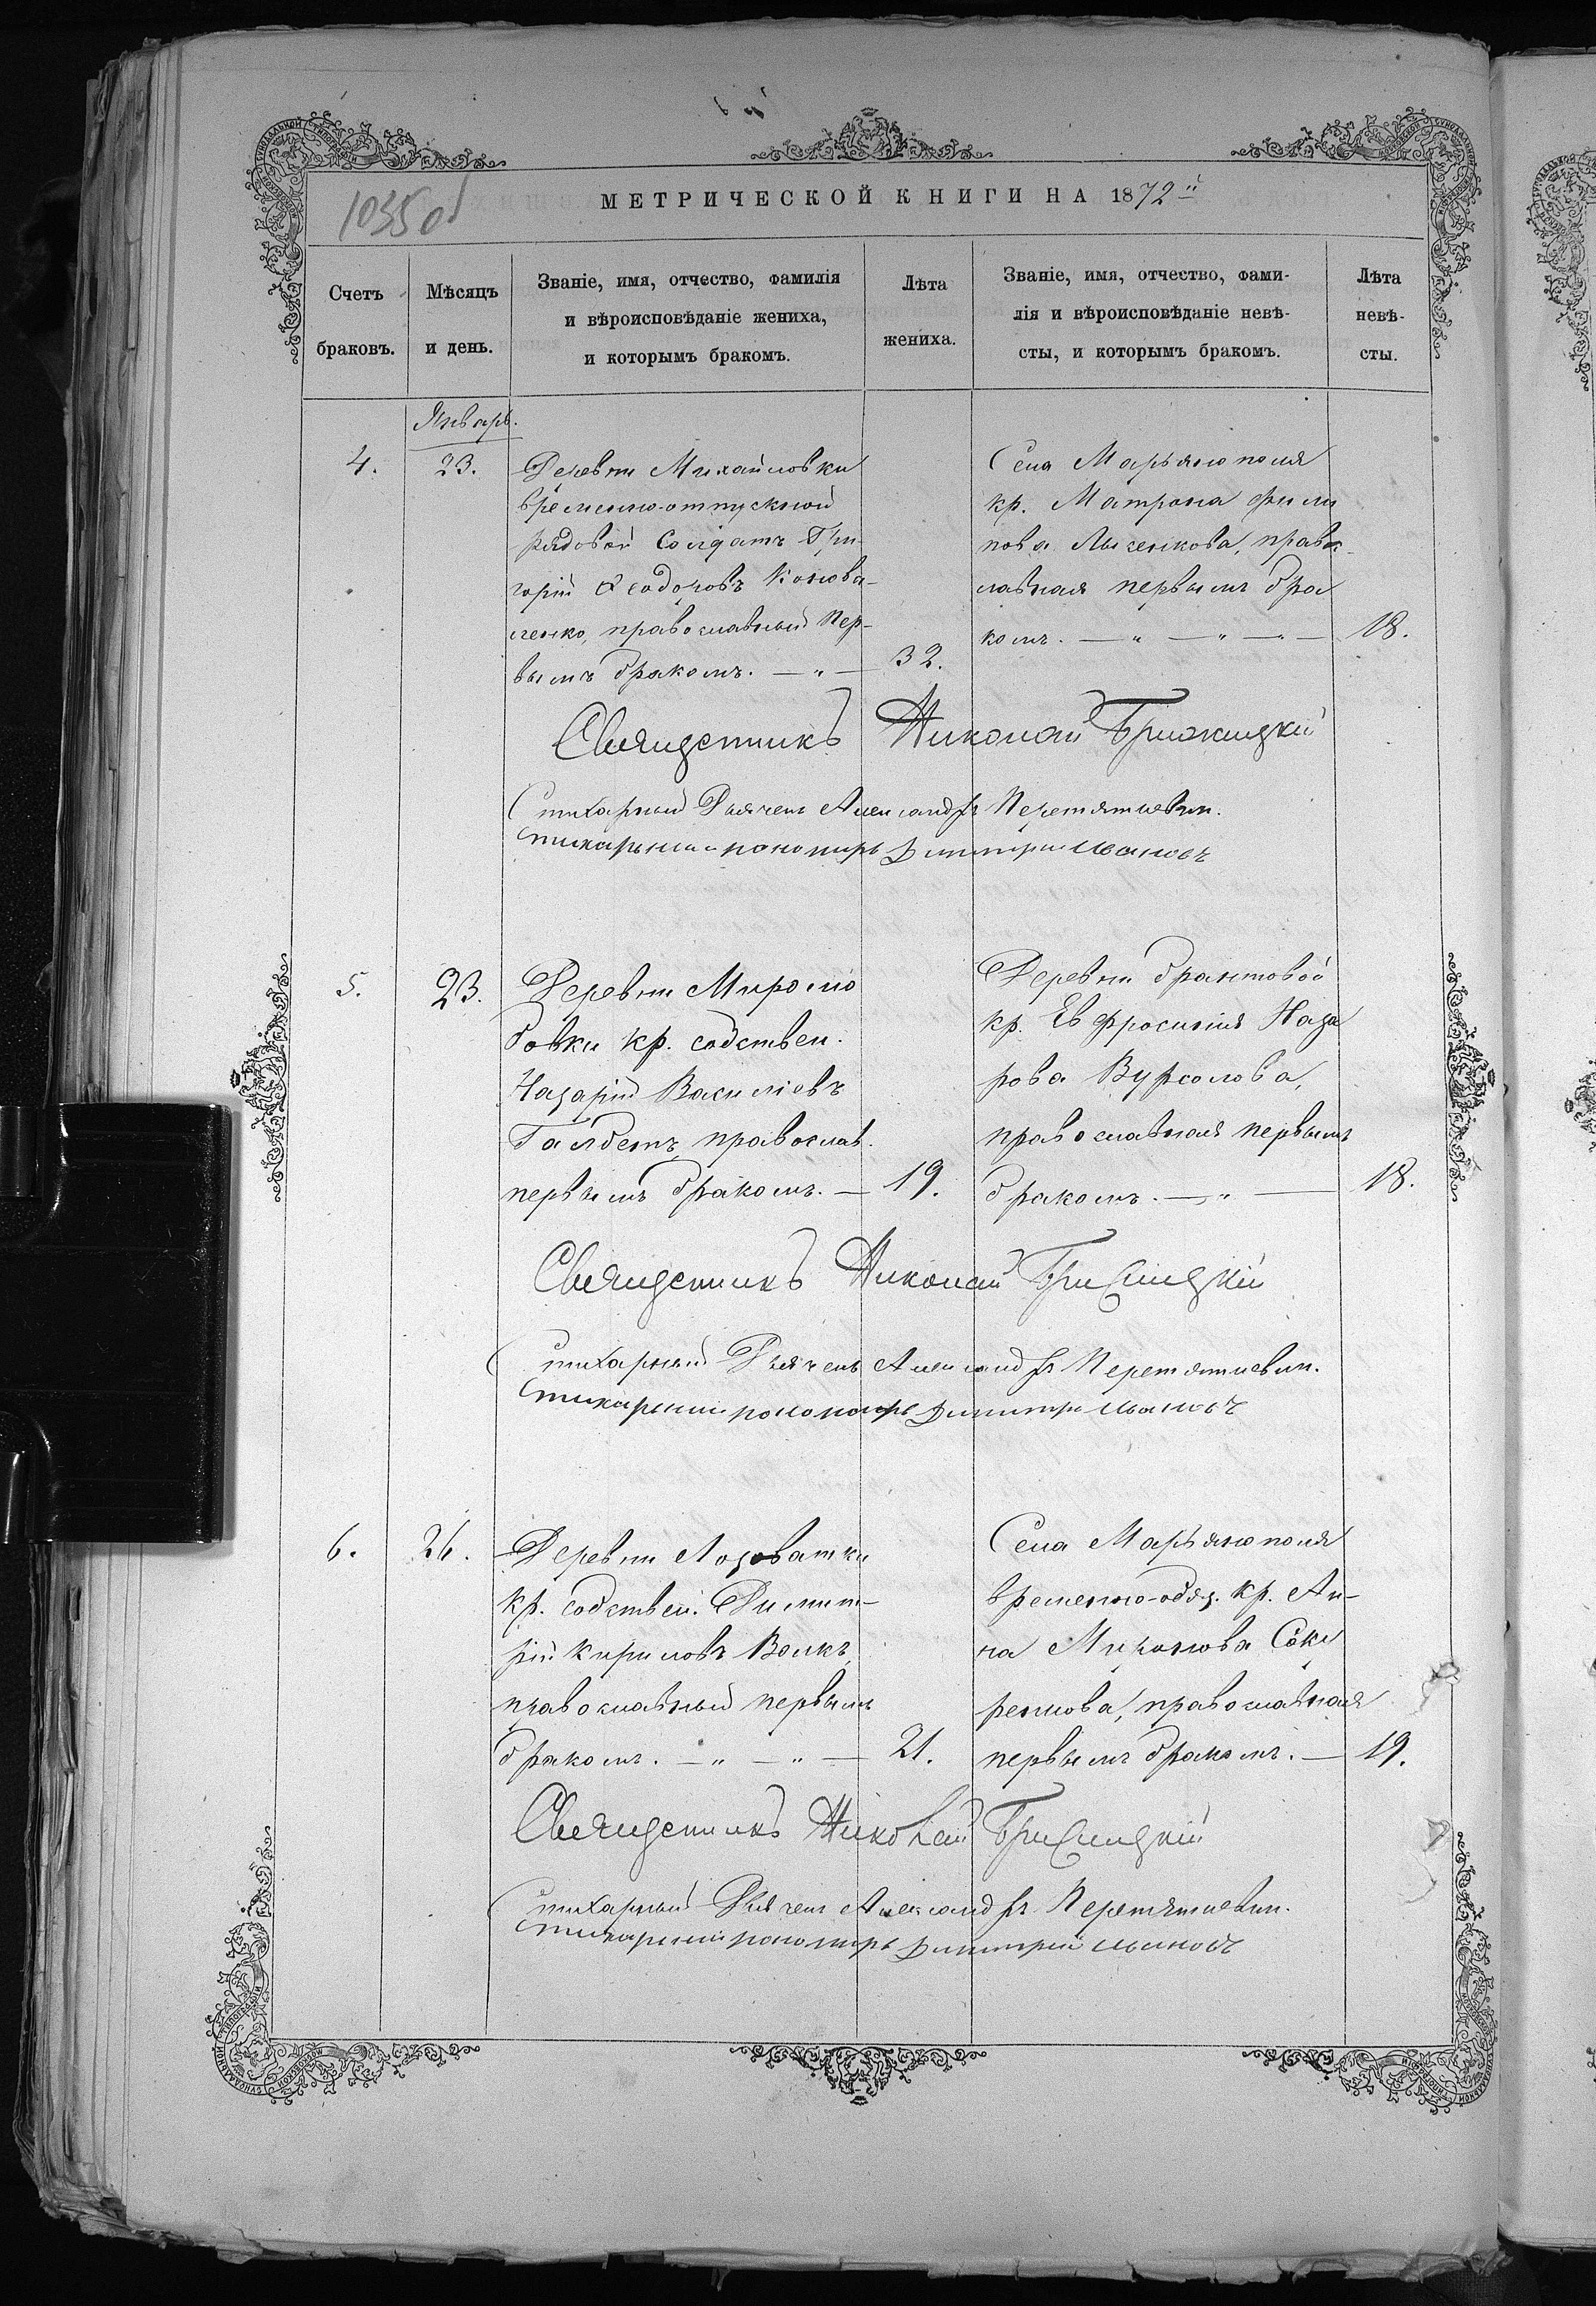 1035 об
МЕТРИЧЕСКОЙ КНИГИ НА 1872й
Счетъ браковъ.
Мѣсяцъ и день.
Званіе, имя, отчество, фамилія
и вѣроисповѣданіе жениха,
и которымъ бракомъ.
Лѣта жениха.
Званіе, имя, отчество, фами-
лія и вѣроисповѣданіе невѣ-
сты, и которымъ бракомъ.
Лѣта невѣ-
сты.
Январь.
4.
23.
Деревни Михайловки
временно-отпускной
рядовой Солдатъ Гри-
горій Ѳеодоровъ Конова-
ленко, православный пер-
вымъ бракомъ. — „ —
32.
Села Марьянополя
кр. Матрона Фили
пова Лысенкова, право-
славная первымъ бра
комъ. — „ — „ — „ —
18.
Священникъ Николай
Стихарный Дьячекъ Александръ Перетяткевич.
Стихарный пономарь Димитрій Ивановъ
5.
23.
Деревни Миролю
бовки кр. собствен.
Назарій Василіевъ
православ.
первымъ бракомъ. —
19.
Деревни Брантовой
кр. Евфросинія Наза
рова Вурсолова,
православная первымъ
бракомъ. — „ —
18.
Священникъ Николай
Стихарный Дьячекъ Александръ Перетяткевич.
Стихарный пономарь Димитрій Ивановъ
6.
26.
Деревни Лозоватки
кр. собствен. Димит-
рій Кириловъ Волкъ,
православный первымъ
бракомъ. — „ — „ —
21.
Села Марьянополя
временно-обяз. кр. Ан-
на Миронова Соки
ренкова, православная
первымъ бракомъ. —
19.
Священникъ Николай
Стихарный Дьячекъ Александръ Перетяткевич.
Стихарный пономарь Димитрій Ивановъ